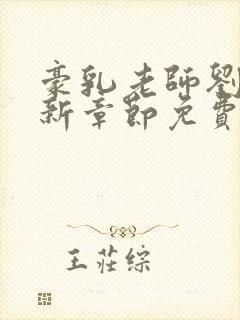 豪乳老師劉
新章節免費
王莊综